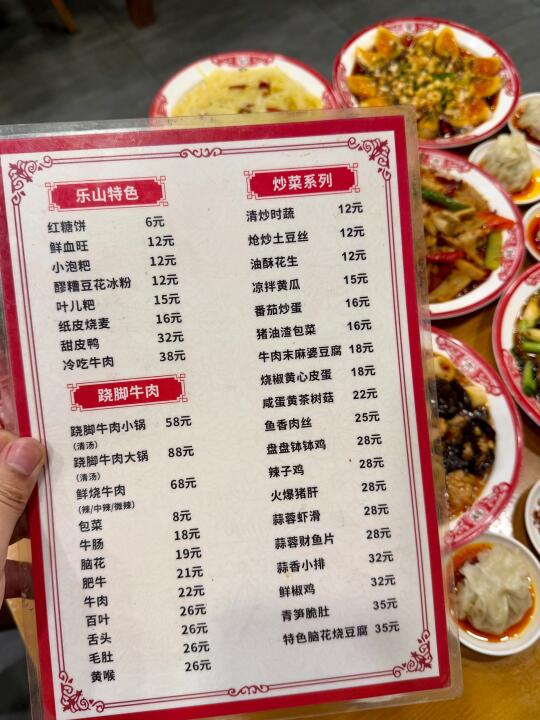 乐山特色
红糖饼 6元
鲜血旺 12元
小泡粑 12元
醪糟豆花冰粉 12元
叶儿粑 15元
纸皮烧麦 16元
甜皮鸭 32元
冷吃牛肉 38元
跷脚牛肉
跷脚牛肉小锅 58元
(清汤)
跷脚牛肉大锅 88元
(清汤)
鲜烧牛肉 68元
(辣/中辣/微辣)
包菜 8元
牛肠 18元
脑花 19元
肥牛 21元
牛肉 22元
百叶 26元
舌头 26元
毛肚 26元
黄喉 26元
炒菜系列
清炒时蔬 12元
炝炒土豆丝 12元
油酥花生 12元
凉拌黄瓜 15元
番茄炒蛋 16元
猪油渣包菜 16元
牛肉末麻婆豆腐 18元
烧椒黄心皮蛋 18元
咸蛋黄茶树菇 22元
鱼香肉丝 25元
盘盘钵钵鸡 28元
辣子鸡 28元
火爆猪肝 28元
蒜蓉虾滑 28元
蒜蓉财鱼片 28元
蒜香小排 32元
鲜椒鸡 32元
青笋脆肚 35元
特色脑花烧豆腐 35元